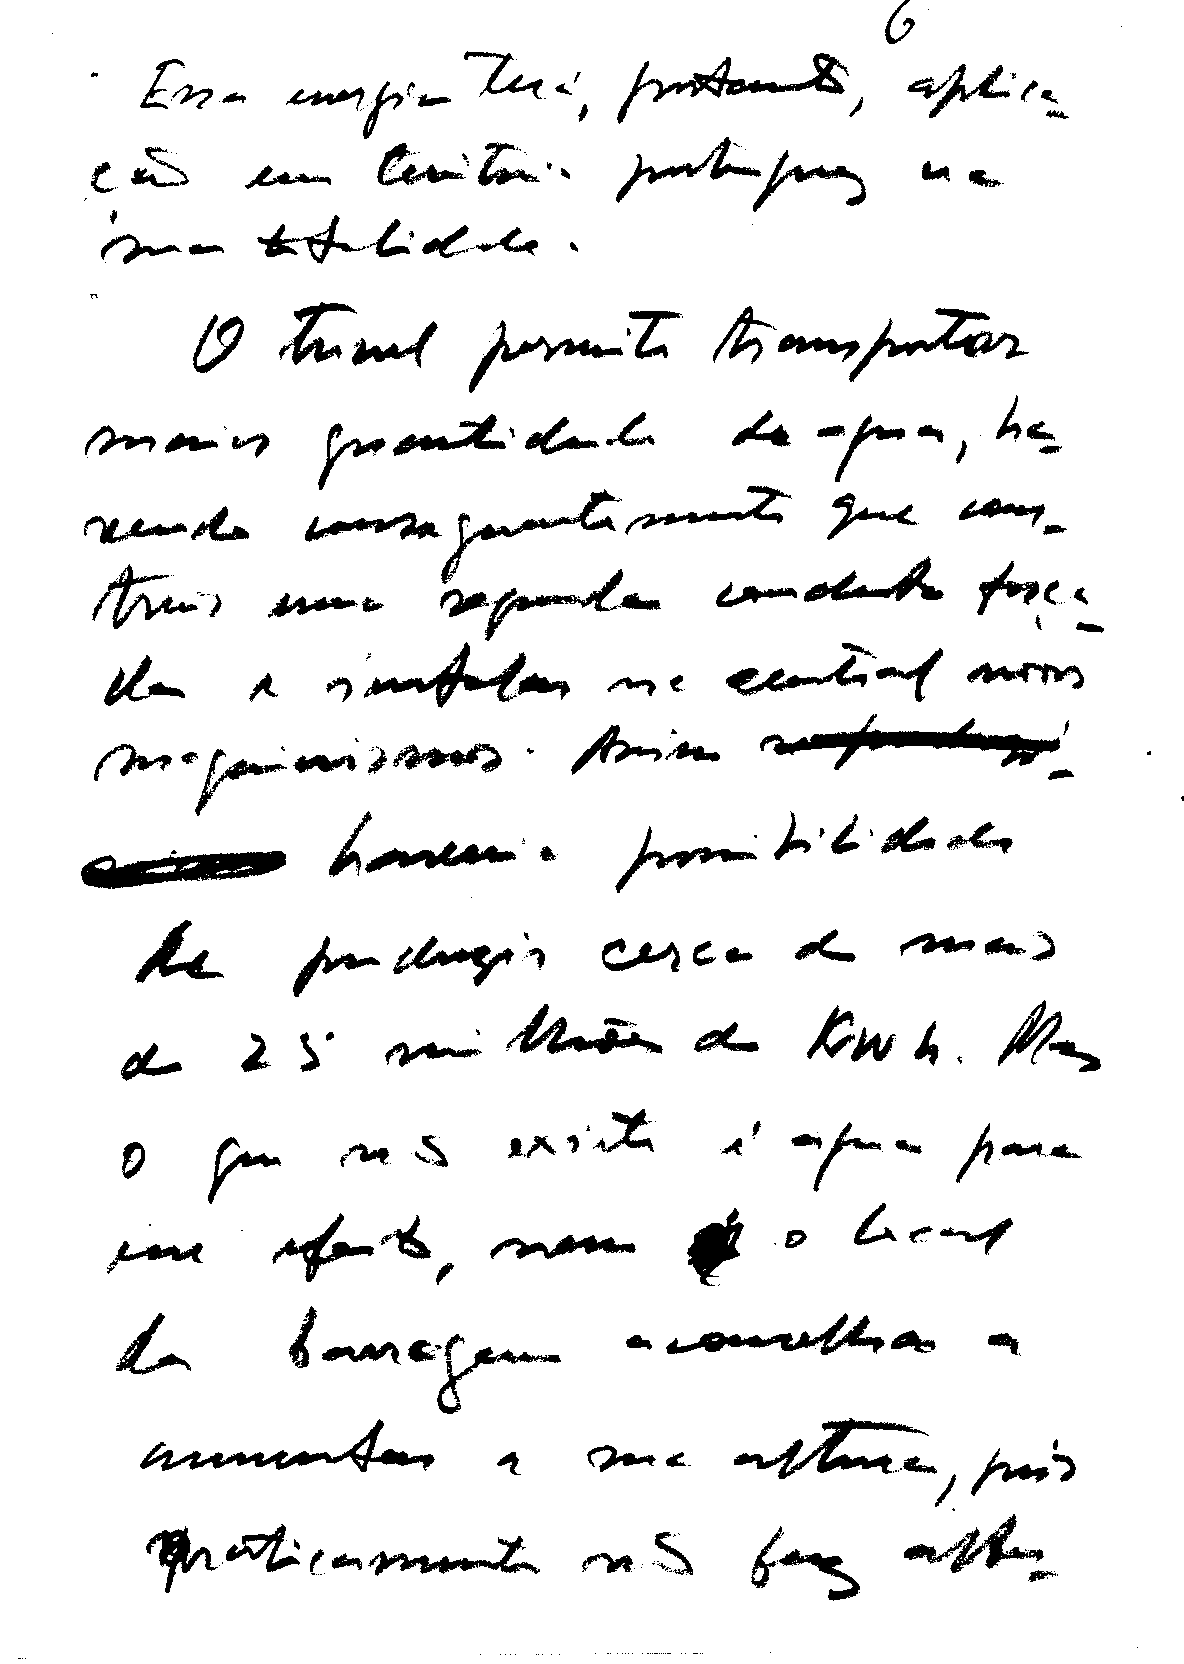 6
Essa energia terá, portanto, aplica-
ção em território portuguez na
sua totalidade.
O tunel permite transportar
maior quantidade de agua, ha-
vendo consequentemente que cons-
truir uma segunda conduta força-
da e instalar na central novos
maquinismos. Assim
haveria possibilidade
de produzir cerca de mais
de 25 milhões de KWh. Mas
o que não existe é agua para
esse efeito, nem o local
da barragem aconselha a
aumentar a sua altura, pois
praticamente não faz alte-